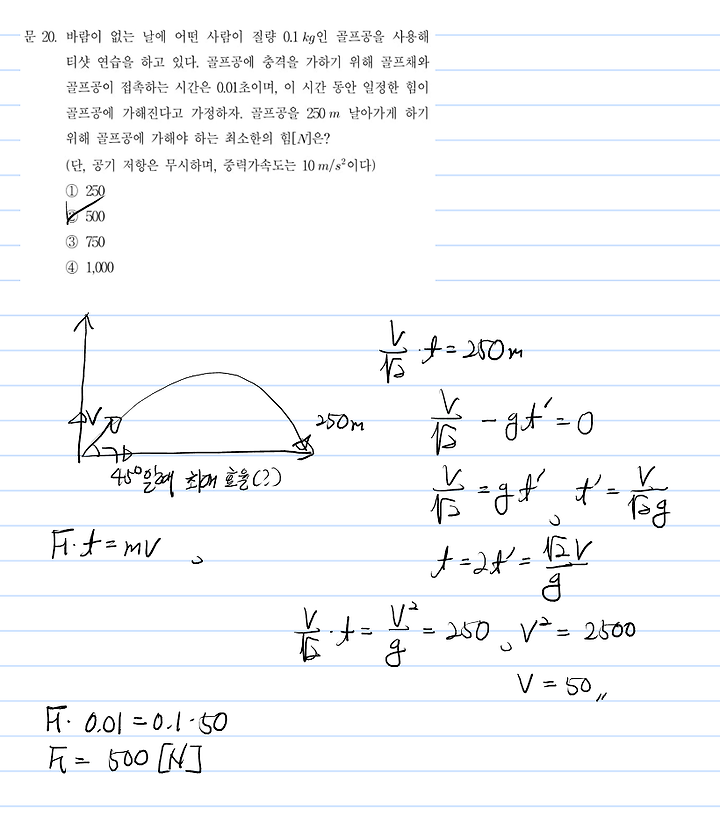 문 20. 바람이 없는 날에 어떤 사람이 질량 0.1 kg인 골프공을 사용해
티샷 연습을 하고 있다. 골프공에 충격을 가하기 위해 골프채와
골프공이 접촉하는 시간은 0.01초이며, 이 시간 동안 일정한 힘이
골프공에 가해진다고 가정하자. 골프공을 250 m 날아가게 하기
위해 골프공에 가해야 하는 최소한의 힘[N]은?
(단, 공기 저항은 무시하며, 중력가속도는 10 m/s²이다)
① 250
② 500
③ 750
④ 1,000
V
250m
45°일때 최대 효율(?)
F·t=mV
V/√2 · t = 250m
V/√2 - gt' = 0
V/√2 = gt', t' = V/√2g
t = 2t' = √2V/g
V/√2 · t = V²/g = 250, V² = 2500
V = 50〃
F· 0.01 = 0.1·50
F = 500 [N]